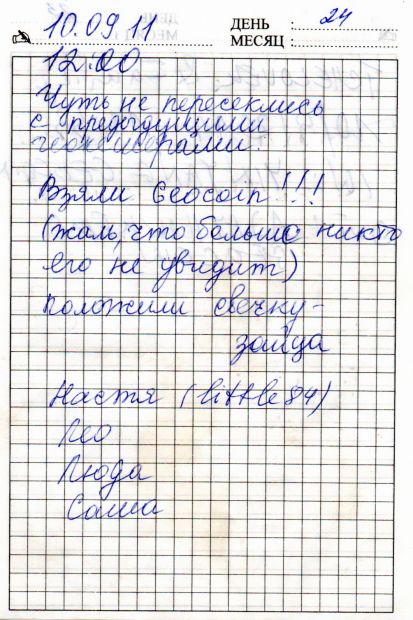 10.09.11
ДЕНЬ : 24
МЕСЯЦ :
12:00
Чуть не пересеклись
с предыдущими
геокешерами.
Взяли Geocoin!!!
(жаль, что больше никто
его не увидит)
положили свечку-
зайца
Настя (little84)
Лео
Люда
Саша